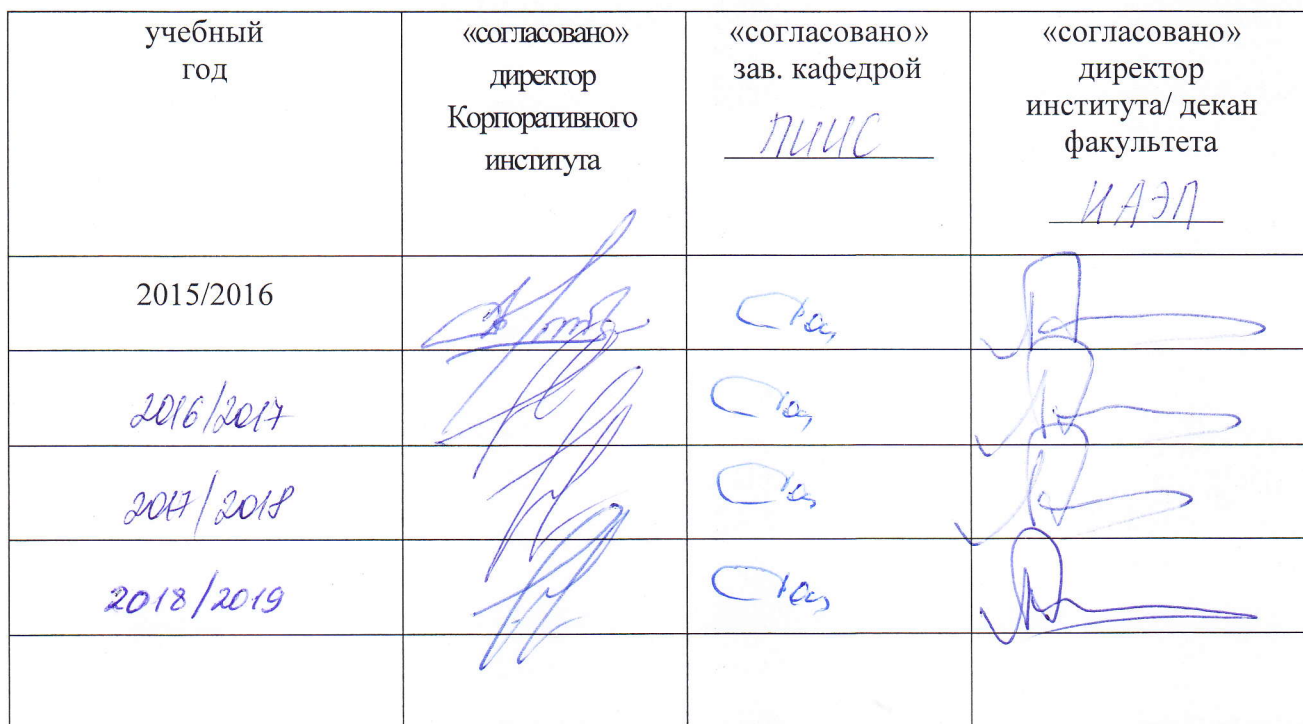 учебный
год
«согласовано»
директор
Корпоративного
института
«согласовано»
зав. кафедрой
ПИИС
«согласовано»
директор
института/ декан
факультета
ИАЭП
2015/2016
2016/2017
2017/2018
2018/2019